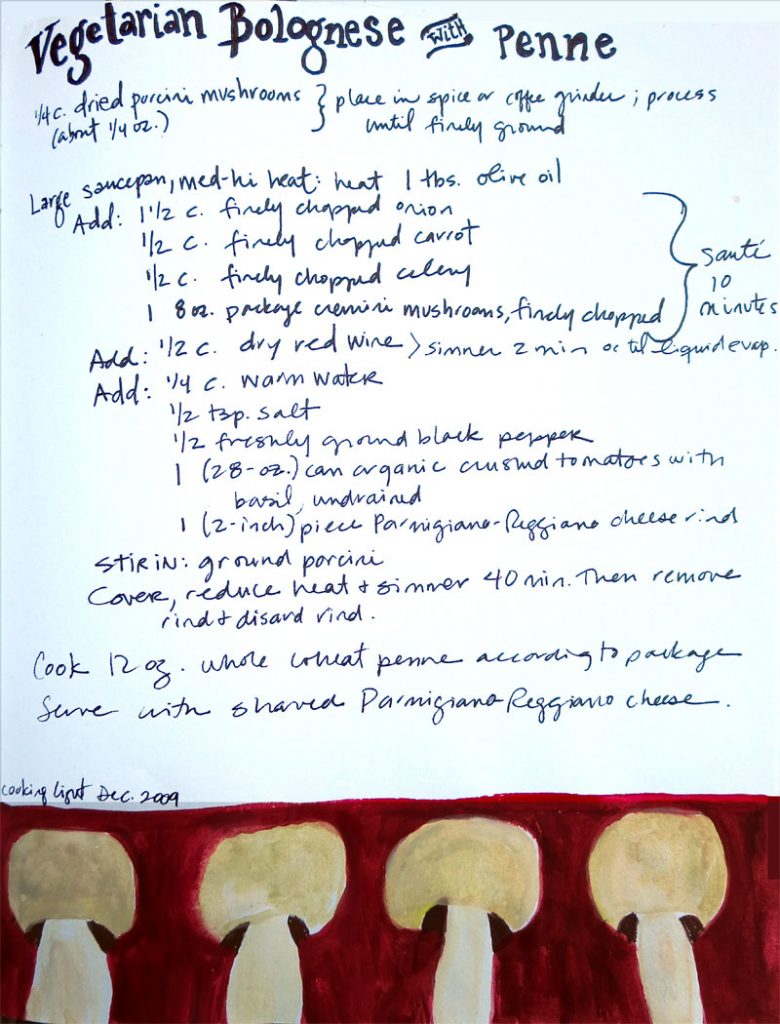 Vegetarian Bolognese with Penne
1/4 c. dried porcini mushrooms } place in spice or coffee grinder; process
(about 1/4 oz.) until finely ground
Large saucepan, med-hi heat: heat 1 tbs. olive oil
Add: 1 1/2 c. finely chopped onion
1/2 c. finely chopped carrot
1/2 c. finely chopped celery
1 8oz. package cremini mushrooms, finely chopped
} sauté
10
minutes
Add: 1/2 c. dry red wine > simmer 2 min or til liquid evap.
Add: 1/4 c. warm water
1/2 tsp. salt
1/2 freshly ground black pepper
1 (28-oz.) can organic crushed tomatoes with
basil, undrained
1 (2-inch) piece Parmigiano-Reggiano cheese rind
Stir in: ground porcini
Cover, reduce heat + simmer 40 min. Then remove
rind + disard rind.
Cook 12 oz. whole wheat penne according to package
Serve with shaved Parmigiano-Reggiano cheese.
Cooking Light Dec. 2009